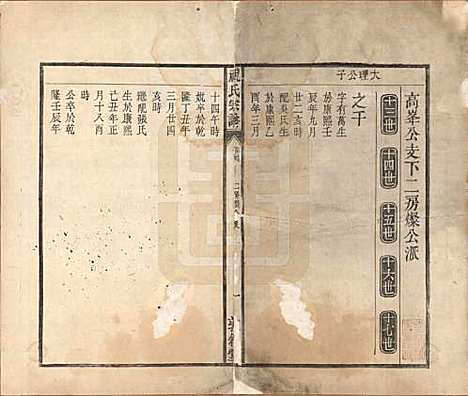 高峯公支下二房燦公派
十三世
十四世
十五世
十六世
十七世
大理公子
之干
字有萬生
於康熙壬
辰年九月
廿二亥時
配吳氏生
於康熙乙
酉年三月
氏宗譜
十四午時
歿卒於乾
隆丁丑年
三月廿四
亥時
張氏
生於康熙
己丑年正
月十八酉
時
公卒於乾
隆壬辰年